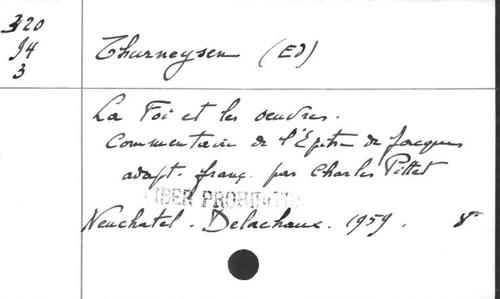 320
J4
3
Thurneysen (Ed)
La Foi et les oeuvres.
Commentaire de l'Epitre de Jacques
adapt. franç. par Charles Pittet
LIBER PROHIBITUS
Neuchatel. Delachaux. 1959. 8°